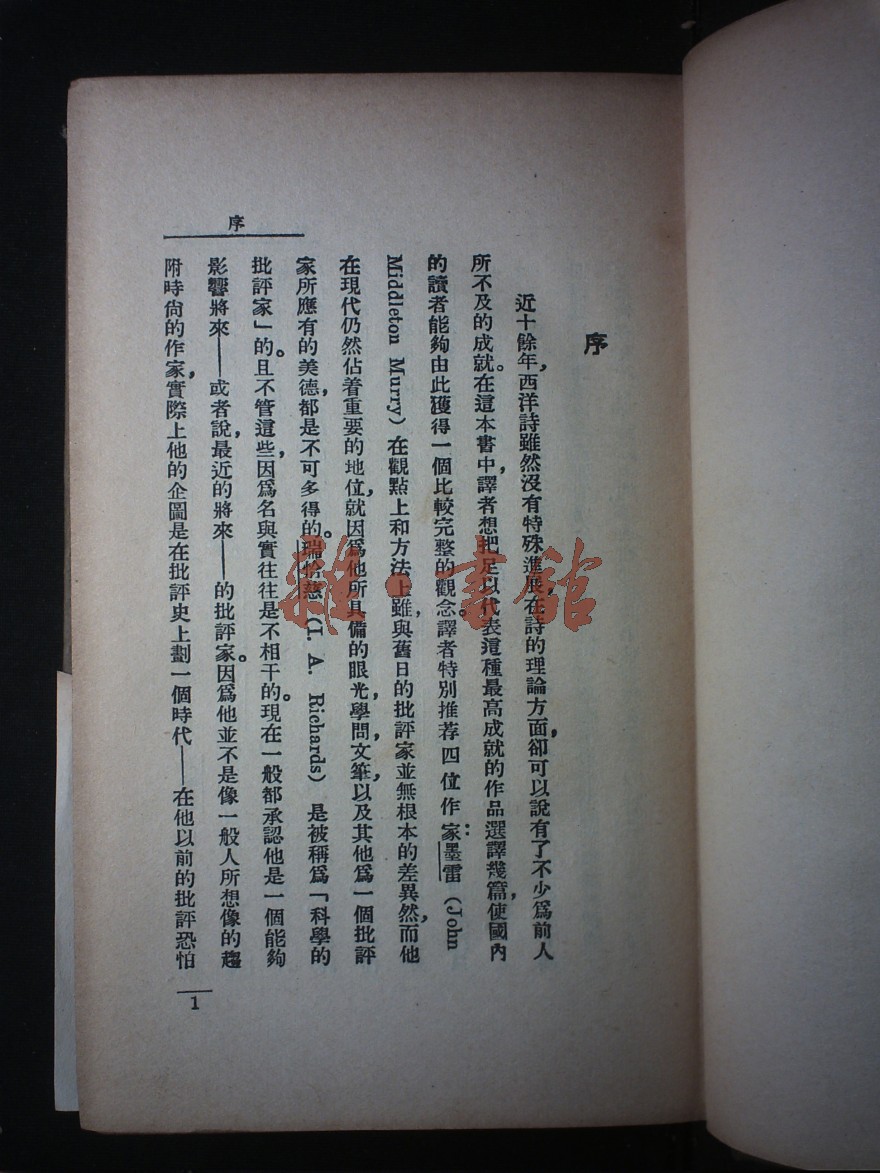 序
近十餘年,西洋詩雖然沒有特殊進展,在詩的理論方面,卻可以說有了不少爲前人
所不及的成就。在這本書中,譯者想把足以代表這種最高成就的作品選譯幾篇,使國內
的讀者能夠由此獲得一個比較完整的觀念。譯者特別推荐四位作家:墨雷(John
Middleton Murry)在觀點上和方法上,雖與舊日的批評家並無根本的差異,然而他
在現代仍然佔着重要的地位,就因爲他所具備的眼光,學問,文筆,以及其他爲一個批評
家所應有的美德,都是不可多得的。瑞恰慈(I. A. Richards)是被稱爲「科學的
批評家」的。且不管這些,因爲名與實往往是不相干的。現在一般都承認他是一個能夠
影響將來——或者說,最近的將來——的批評家。因爲他並不是像一般人所想像的趨
附時尙的作家,實際上他的企圖是在批評史上劃一個時代——在他以前的批評恐怕
序
1
雜·書館